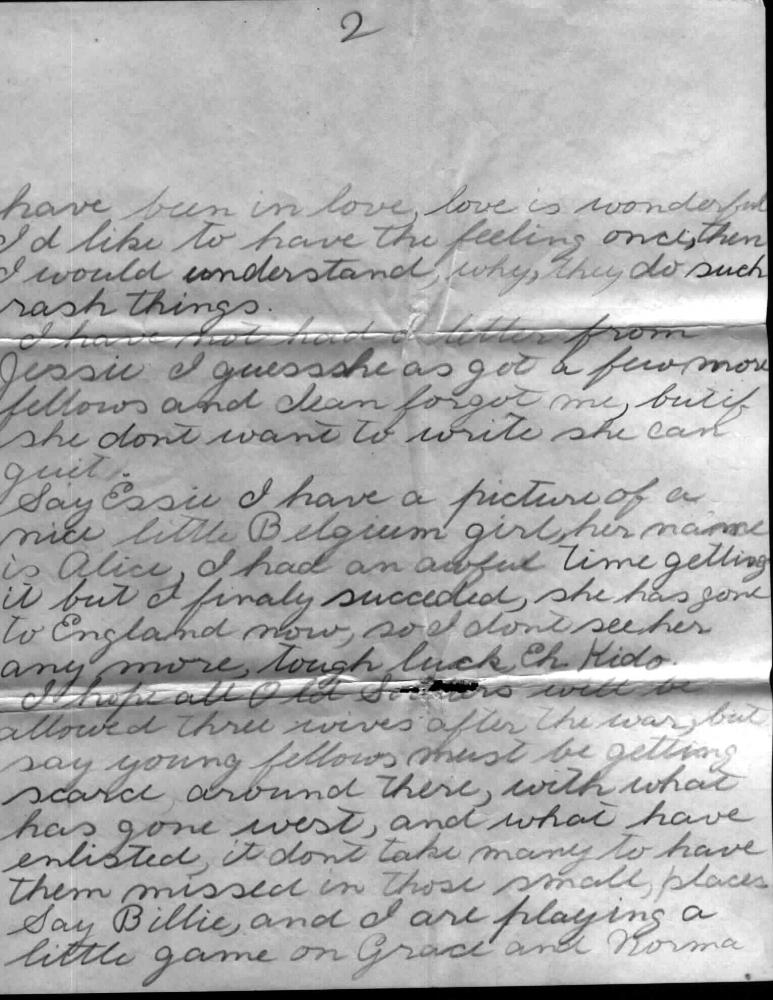 2
have been in love, love is wonderful
I'd like to have the feeling once, then
I would understand, why, they do such
rash things.
I have not had a letter from
Jessie I guess she as got a few more
fellows and clean forgot me, but if
she dont want to write she can
quit.
Say Essie I have a picture of a
nice little Belgium girl, her name
is Alice, I had an awful time getting
it but I finaly succeded, she has gone
to England now, so I dont see her
any more, tough luck, Eh Kido.
I hope all Old Soldiers will be
allowed three wives after the war, but
say young fellows must be getting
scarce around there, with what
has gone west, and what have
enlisted, it dont take many to have
them missed in those small, places
Say Billie, and I are playing a
little game on Grace and Norma